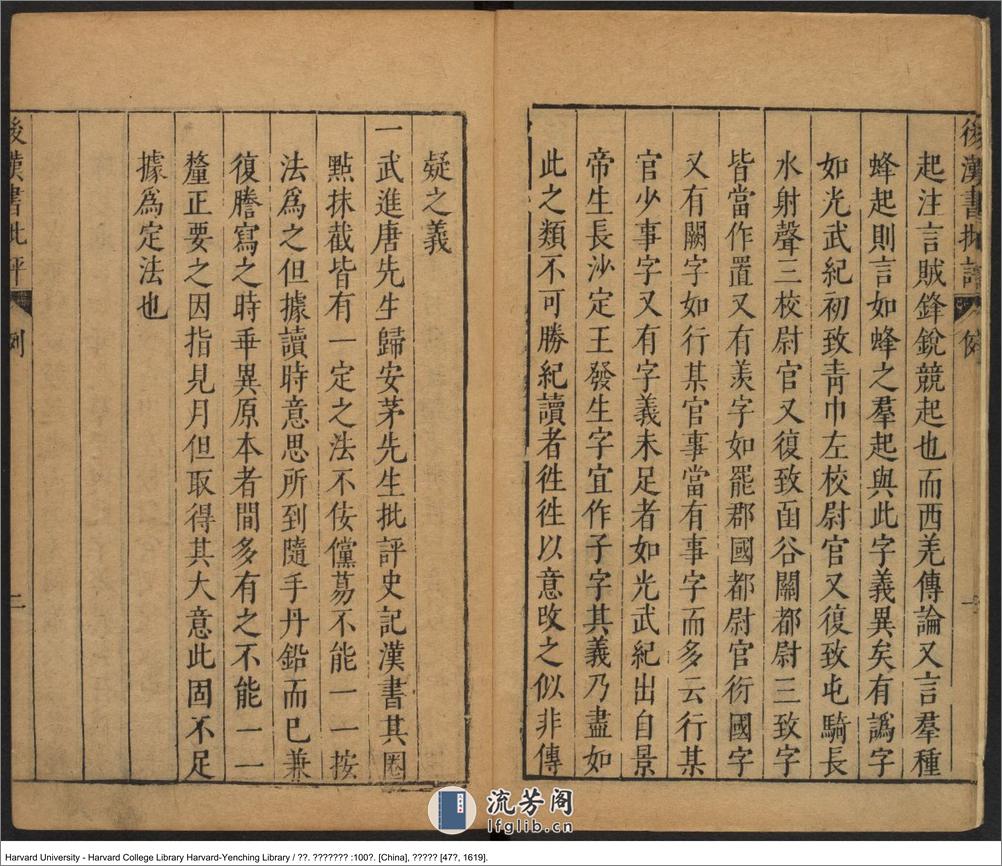 後漢書批評
例
一
起注言賊鋒銳競起也而西羌傳論又言羣種
蜂起則言如蜂之羣起與此字義異矣有譌字
如光武紀初致青巾左校尉官又復致屯騎長
水射聲三校尉官又復致函谷關都尉三致字
皆當作置又有羨字如罷郡國都尉官衍國字
又有闕字如行某官事當有事字而多云行某
官少事字又有字義未足者如光武紀出自景
帝生長沙定王發生字宜作子字其義乃盡如
此之類不可勝紀讀者徃徃以意改之似非傳
疑之義
一武進唐先生歸安茅先生批評史記漢書其圈
點抹截皆有一定之法不佞儻昜不能一一按
法爲之但據讀時意思所到隨手丹鉛而已兼
復謄寫之時乖異原本者間多有之不能一一
釐正要之因指見月但取得其大意此固不足
據爲定法也
後漢書批評
例
二
流芳阁
lfglib.cn
Harvard University - Harvard College Library Harvard-Yenching Library / ??. ??????? :100?. [China], ????? [47?, 1619].